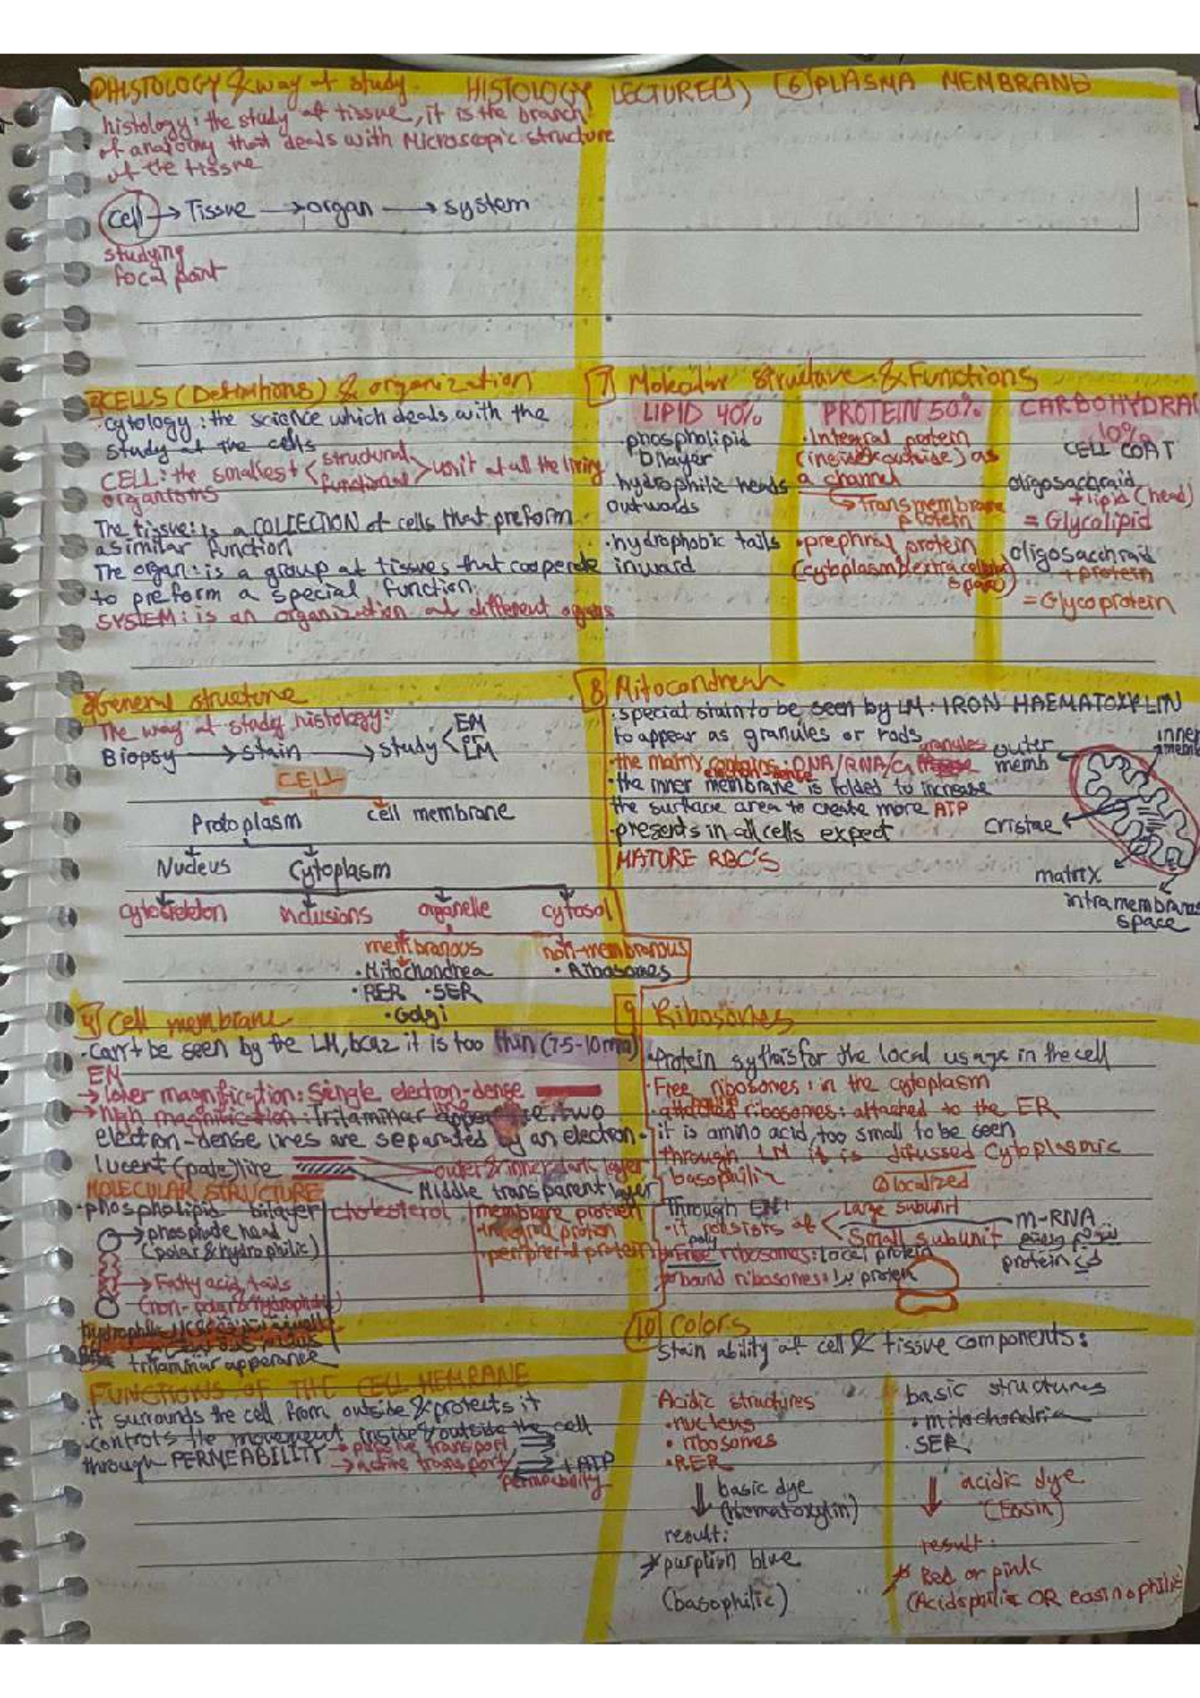 HISTOLOGY LECTURE(1)
① HISTOLOGY & way of study.
histology: the study of tissue, it is the branch
of anatomy that deals with Microscopic structure
of the tissue
cell → Tissue → organ → system
studying
focal point
CELLS (Definitions) & organization
cytology: the science which deals with the
study of the cells
CELL: the smallest < structural functional > unit of all the living
The tissue: is a COLLECTION of cells that preform
a similar function
The organ: is a group of tissues that cooperate
to preform a special function.
SYSTEM: is an organization of different organs
General structure
The way of study histology:
Biopsy → stain → study < EM or LM
CELL
Protoplasm cell membrane
Nucleus Cytoplasm
cytoskeleton inclusions organelle cytosol
membranous non-membranous
• Mitochondrea • Ribosomes
• RER • SER
• Golgi
4 Cell membrane
• Can't be seen by the LM, bcaz it is too thin (7.5-10
EM
→ lower magnification: single electron-dense
→ high magnification: Trilaminar appearance. two
electron-dense lines are separated by an electron-
lucent (pale) line
outer & inner dark layer
Middle transparent layer
MOLECULAR STRUCTURE
• phospholipid bilayer cholesterol membrane protien
→ phosphate head • integral protien
(polar & hydrophilic) • peripheral protien
→ Fatty acid tails
trilaminar apperance
FUNCTIONS OF THE CELL MEMRANE
• it surrounds the cell from outside & protects it
• controls the movement inside & outside the cell
through PERMEABILITY → passive transport
→ active transport + ATP
permeability
6 PLASMA MEMBRANE
7 Molecular Structure & Functions
LIPID 40% PROTEIN 50% CARBOHYDRA
10%
• phospolipid
bilayer
hydrophilc heads
outwords
• hydrophobic tails
inward
• Integral protein
(inside & outside) as
a channel
→ Transmembrane
protein
• prephral protein
CELL COAT
+ lipid (head)
= Glycolipid
+ protein
= Glycoprotein
8 Mitocondreah
• special stain to be seen by LM: IRON HAEMATOXYLIN
to appear as granules or rods
• the matrix contains: DNA/RNA/Ca granules
electron-dense
• the inner membrane is folded to increase
the surface area to create more ATP
• presents in all cells expect
MATURE RBC'S
outer
memb
inner
Cristae
matrix
intramembrane
space
9 Ribosomes
• Free ribosomes: in the cytoplasm
• attached ribosomes: attached to the ER
• it is amino acid, too small to be seen
through LM it is diffused Cytoplasmic
basophilia
② localized
Through EM:
• it consists of < Large subunit Small subunit
m-RNA
protein
poly
Free ribosomes: local protein
bound ribosomes:
10 Colors
stain ability of cell & tissue components:
Acidic structures
• nucleus
• ribosomes
• RER
↓ basic dye
(Hematoxylin)
result:
* purplish blue
(basophilic)
basic structures
• mitochondria
• SER
↓ acidic dye
(Eosin)
result:
* Red or pink